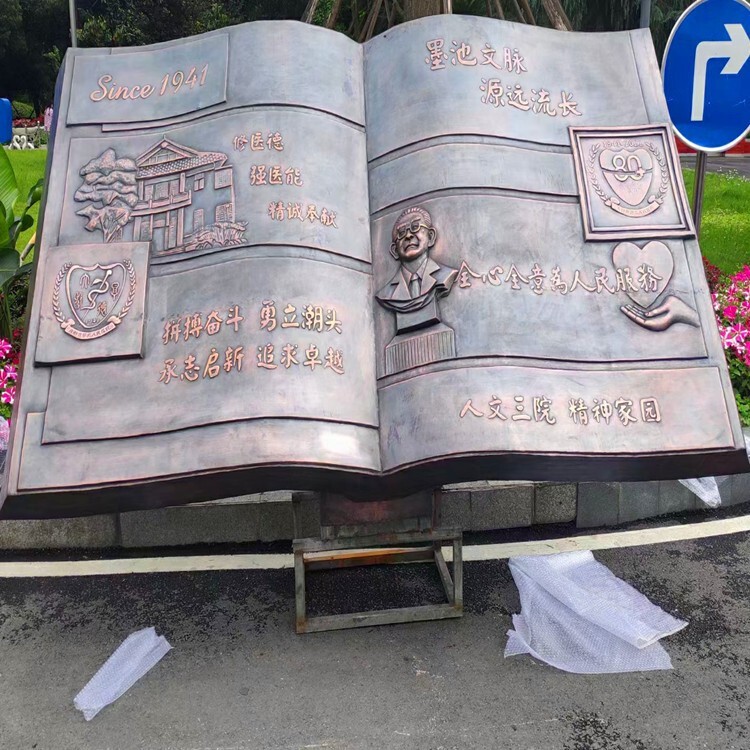 Since 1941
修医德
强医能
精诚奉献
拼搏奋斗 勇立潮头
承志启新 追求卓越
墨池文脉
源远流长
全心全意為人民服務
人文三院 精神家园